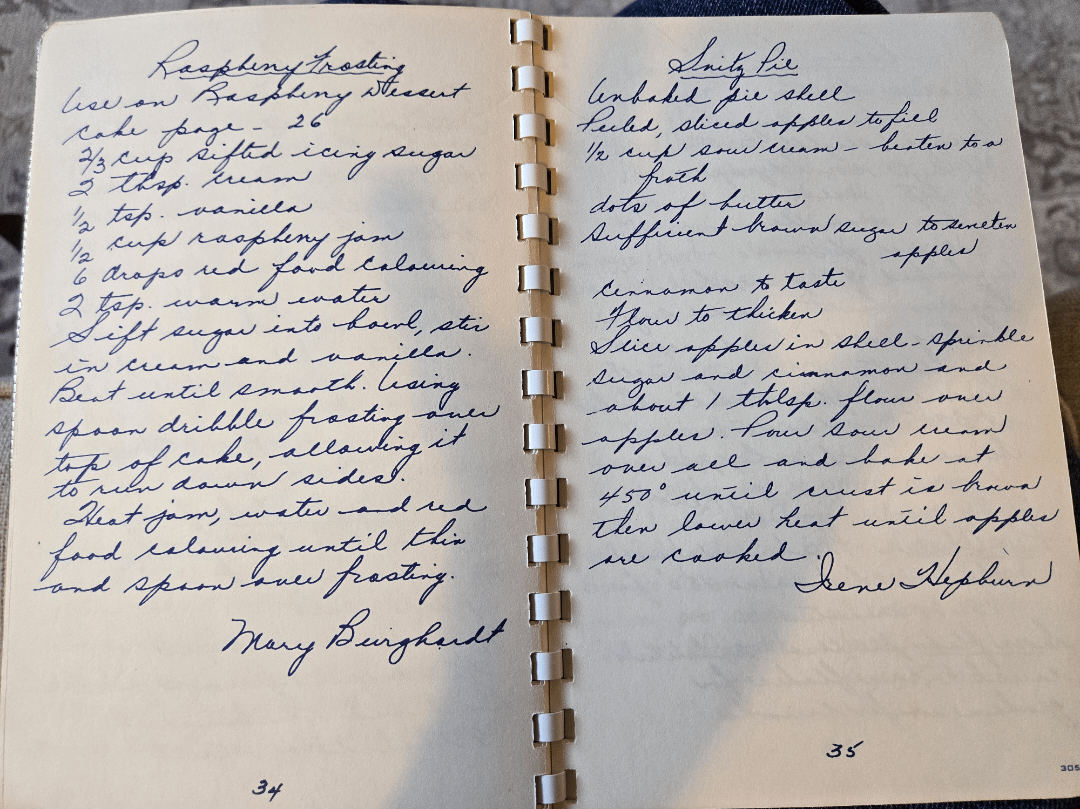 Raspberry Frosting
Use on Raspberry Dessert
cake page - 26
2/3 cup sifted icing sugar
2 tbsp. cream
1/2 tsp. vanilla
1/2 cup raspberry jam
6 drops red food colouring
2 tsp. warm water
Sift sugar into bowl, stir
in cream and vanilla.
Beat until smooth. Using
spoon dribble frosting over
top of cake, allowing it
to run down sides.
Heat jam, water and red
food colouring until thin
and spoon over frosting.
Mary Burghardt
34
Snitz Pie
Unbaked pie shell
Peeled, sliced apples to fill
1/2 cup sour cream - beaten to a
froth
dots of butter
sufficient brown sugar to seneten
apples
cinnamon to taste
Flour to thicken
Slice apples in shell - sprinkle
sugar and cinnamon and
about 1 tblsp. flour over
apples. Pour sour cream
over all and bake at
450° until crust is brown
then lower heat until apples
are cooked.
Irene Hepburn
35
305